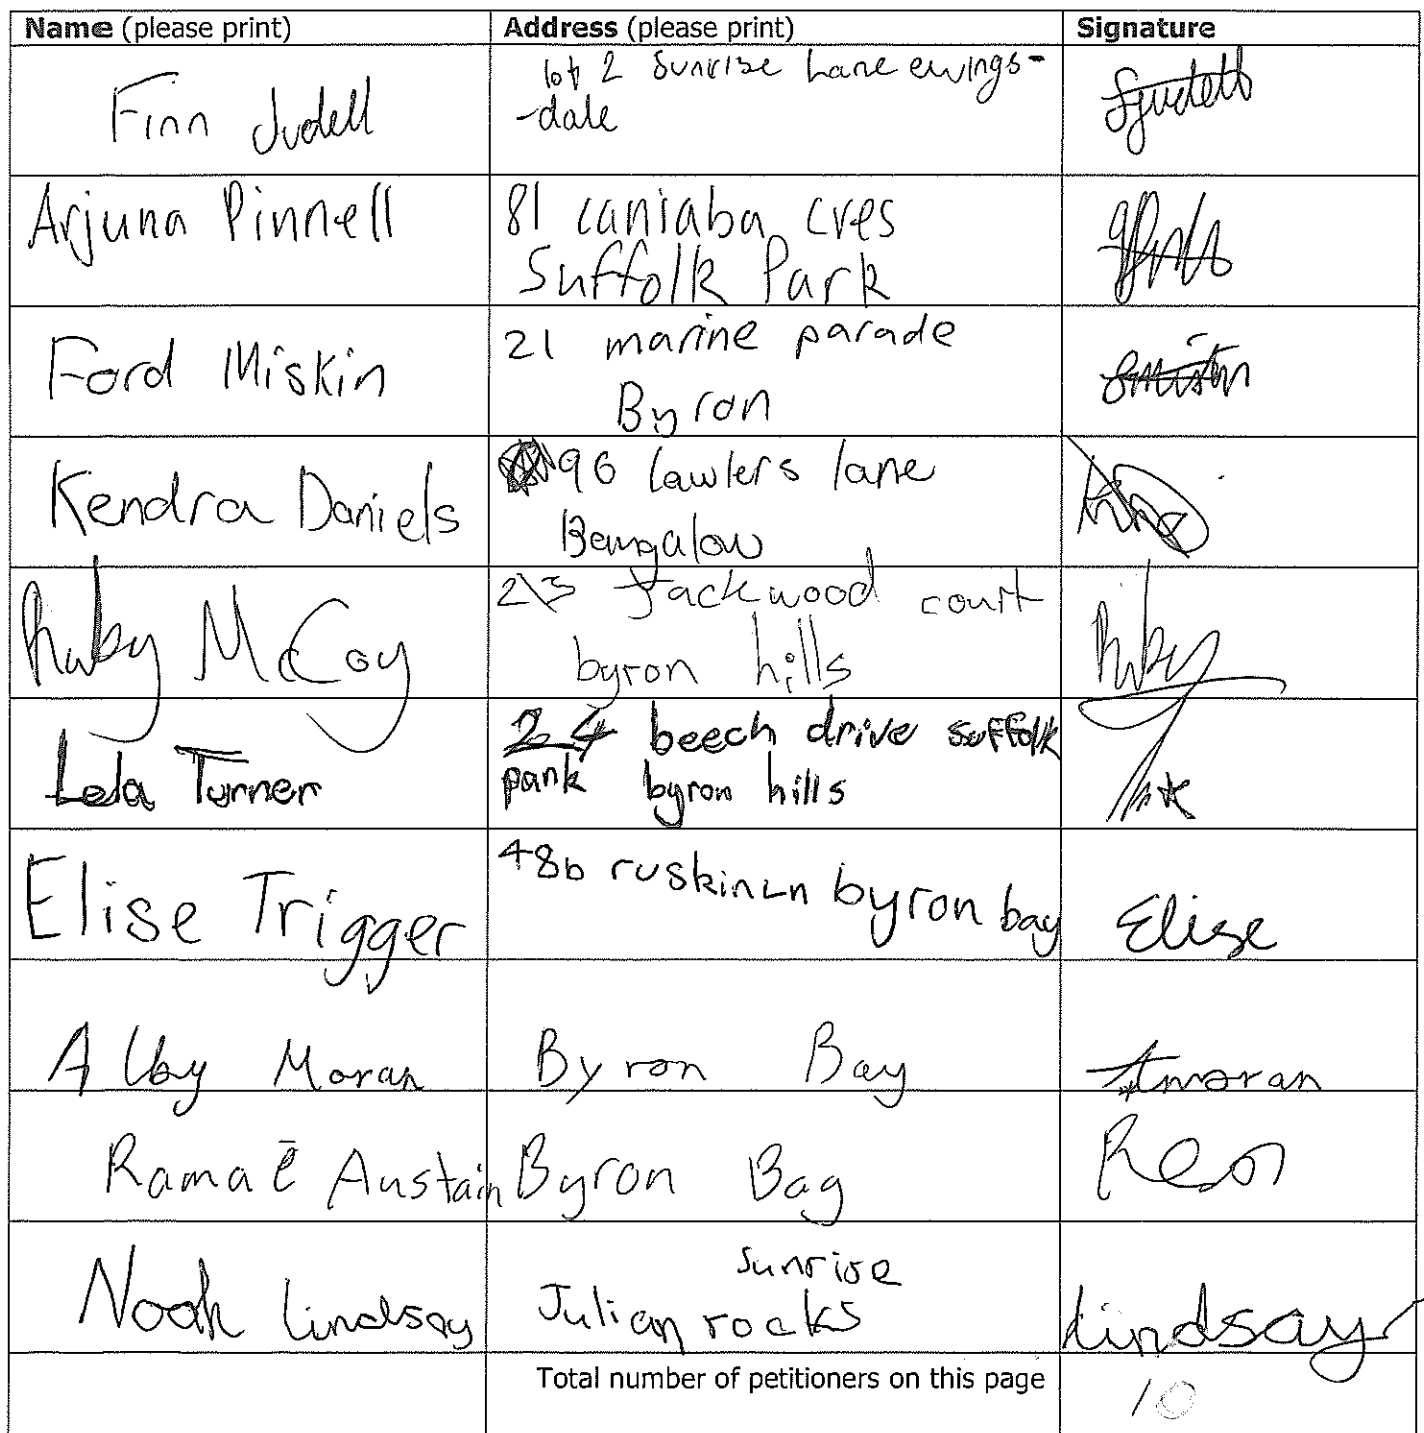 Name (please print) Address (please print) Signature
Finn Judell lot 2 Sunrise Lane ewings-
-dale
Arjuna Pinnell 81 caniaba cres
Suffolk Park
Ford Miskin 21 marine parade
Byron
Kendra Daniels 96 lawlers lane
Bangalow
Ruby McCoy 2\3 Jackwood court Ruby
byron hills
Lela Turner 24 beech drive suffolk
park byron hills
Elise Trigger 48b ruskin Ln byron bay Elise
Alby Moran Byron Bay Amoran
Ramaē Austain Byron Bay
Noah Lindsay sunrise
Julian rocks Lindsay
Total number of petitioners on this page 10